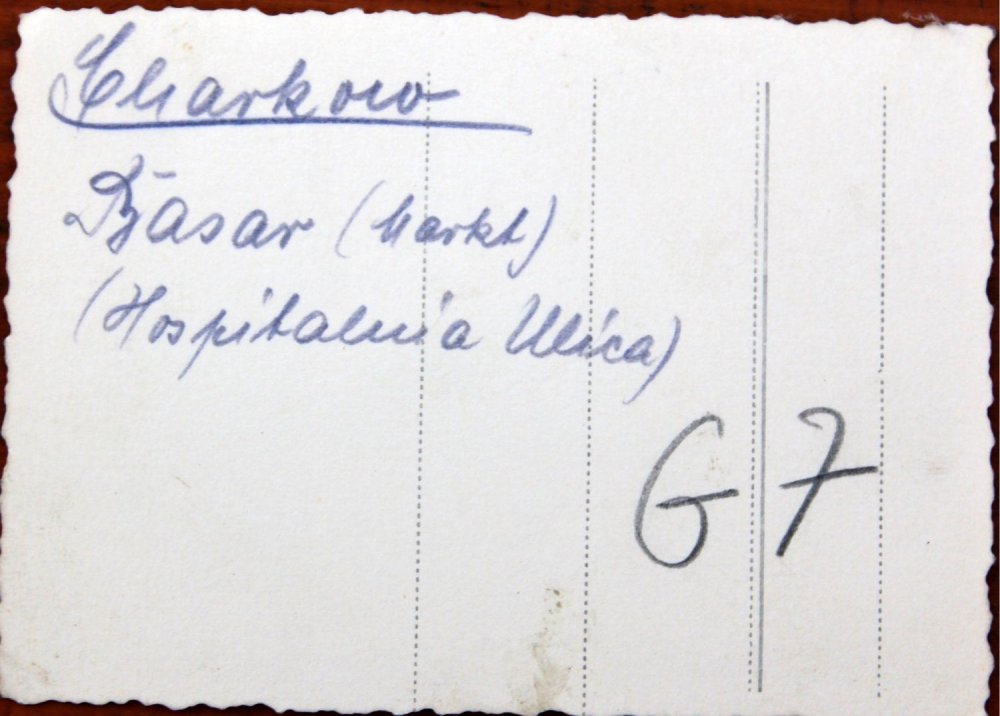 Charkow
Basar (Markt)
(Hospitalnia Ulica)
G 7